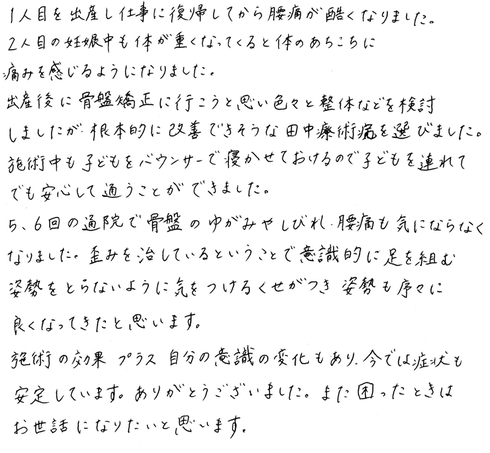 1人目を出産し仕事に復帰してから腰痛が酷くなりました。
2人目の妊娠中も体が重くなってくると体のあちこちに
痛みを感じるようになりました。
出産後に骨盤矯正に行こうと思い色々と整体などを検討
しましたが、根本的に改善できそうな田中療術院を選びました。
施術中も子どもをバウンサーで寝かせておけるので子どもを連れて
でも安心して通うことができました。
5、6回の通院で骨盤のゆがみやしびれ、腰痛も気にならなく
なりました。歪みを治しているということで意識的に足を組む
姿勢をとらないように気をつけるくせがつき 姿勢も序々に
良くなってきたと思います。
施術の効果 プラス 自分の意識の変化もあり、今では症状も
安定しています。ありがとうございました。また困ったときは
お世話になりたいと思います。